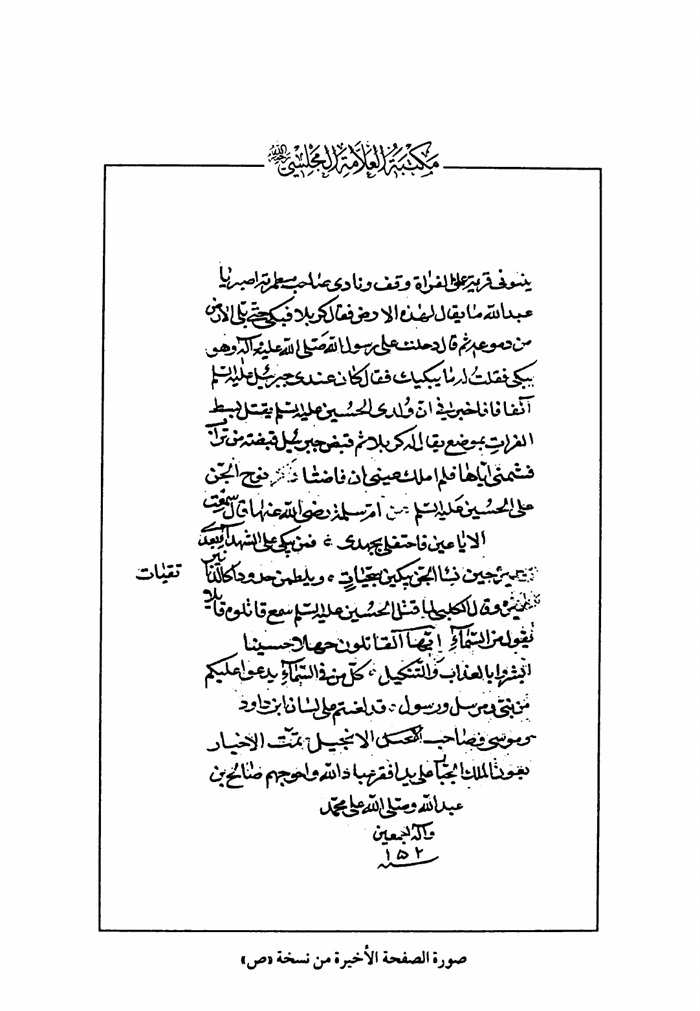 مكتبة العلامة المجلسي رحمه الله
نينوى قرية على الفراة وقف ونادى صاحب مطهرته اصبر يا
عبد الله ما يقال لهذه الارض فقال كربلا فبكى حتى بل الارض
من دموعه ثم قال دخلت على رسول الله صلى الله عليه وآله وهو
يبكي فقلت له ما يبكيك فقال كان عندى جبرئيل عليه السلم
آنفا فاخبرني ان ولدى الحسين عليه السلم يقتل بشط
الفرات بموضع يقال له كربلا ثم قبض جبرئيل قبضة من تراب
فشمنى اياها فلم املك عينى ان فاضتا نوح الجن
على الحسين عليه السلم ام سلمة رضى الله عنها قال سمعت
الا يا عين فاحتفلى بجهدى فمن يبكى على الشهدآء بعدى
نسآء الجن يبكين شجيات ويلطمن خدودا كالدنانير
نقيات
وقال الكلبي لما قتل الحسين عليه السلم سمع قاتلوه قايلا
يقول من السمآء ايها القاتلون جهلا حسينا
ابشروا بالعذاب والتنكيل كل من في السمآء يدعوا عليكم
من نبي ومرسل ورسول قد لعنتم على لسان ابن داود
وموسى وصاحب الانجيل تمت الاخبار
بعون الملك الجبار على يد افقر عباد الله واحوجهم صالح بن
عبد الله وصلى الله على محمد
وآله اجمعين
سنة ١٥٢
صورة الصفحة الأخيرة من نسخة «ص»